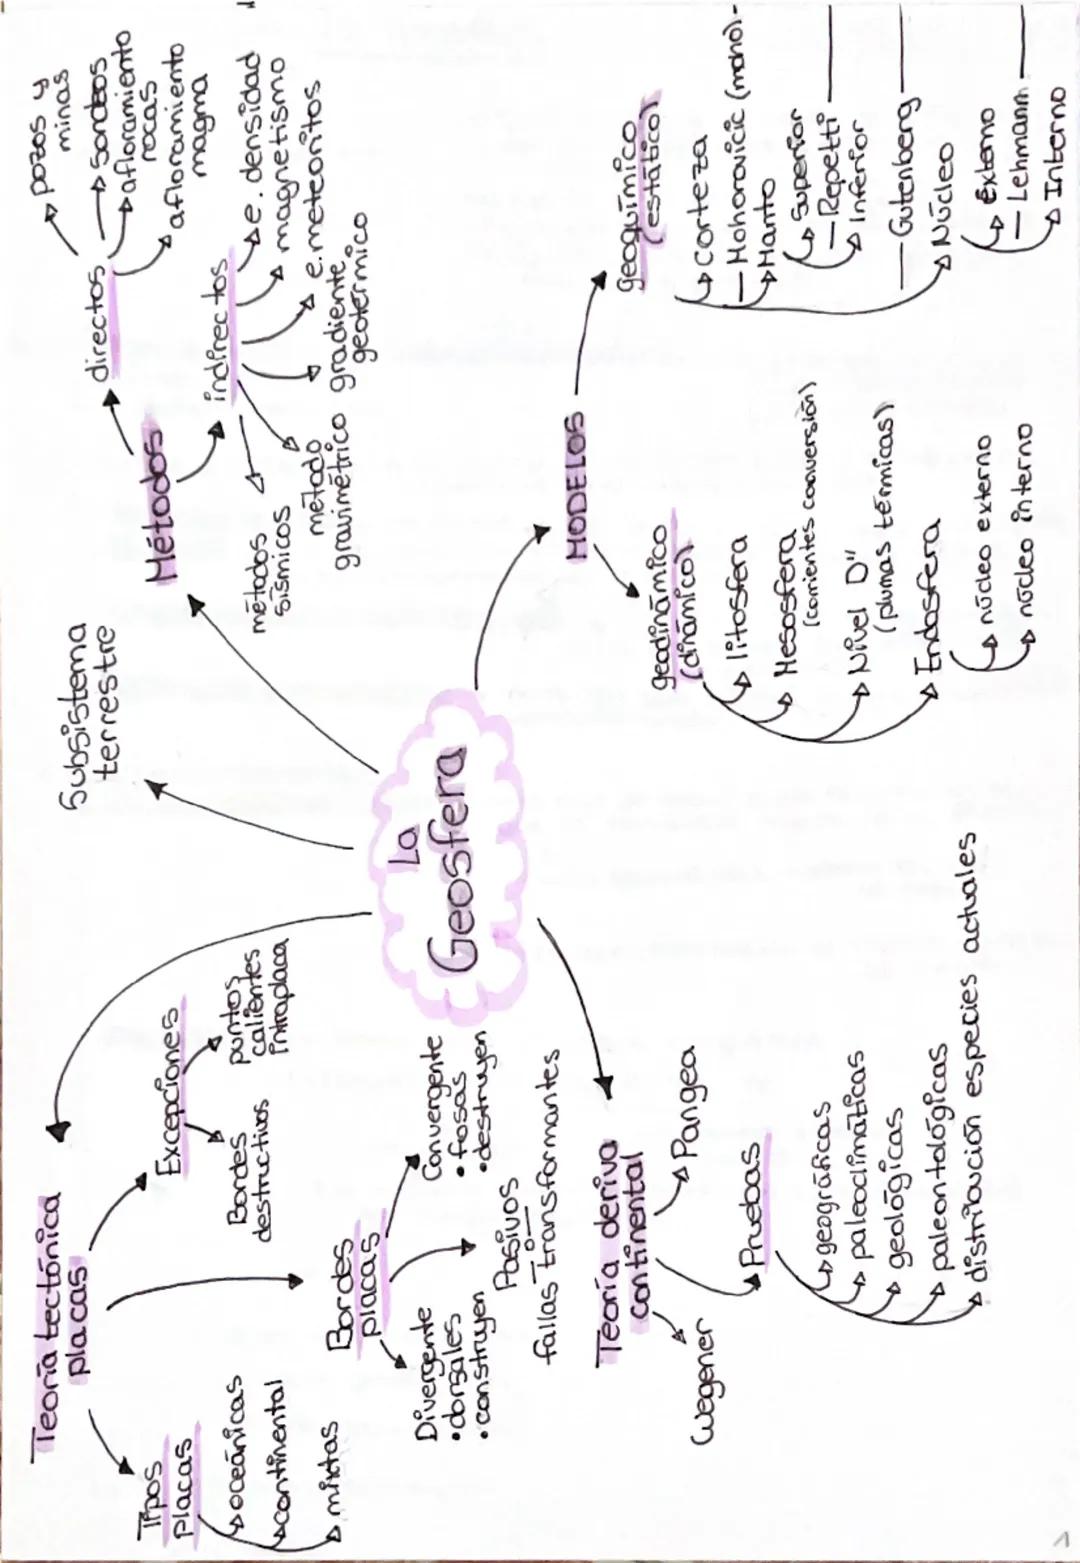 La
Geosfera
Subsistema
terrestre
Métodos
directos
pozos y
minas
sondeos
afloramiento
rocas
afloramiento
magma
indirectos
e. densidad
magnetismo
e. meteoritos
gradiente
geotérmico
método
gravimétrico
métodos
sísmicos
MODELOS
geoquímico
(estático)
Corteza
Mohorovicic (moho)
Manto
Superior
Repetti
Inferior
Gutenberg
Núcleo
Externo
Lehmann
Interno
geodinámico
(dinámico)
litosfera
Mesosfera
(corrientes conversión)
Nivel D"
(plumas térmicas)
Endosfera
núcleo externo
núcleo interno
Teoría deriva
continental
Pangea
Wegener
Pruebas
geográficas
paleoclimáticas
geológicas
paleontológicas
distribución especies actuales
Teoría tectónica
placas
Excepciones
puntos
calientes
intraplaca
Bordes
destructivos
Bordes
placas
Convergente
• fosas
• destruyen
Pasivos
fallas transformantes
Divergente
• dorsales
• construyen
Tipos
placas
oceánicas
continental
mixtas
1